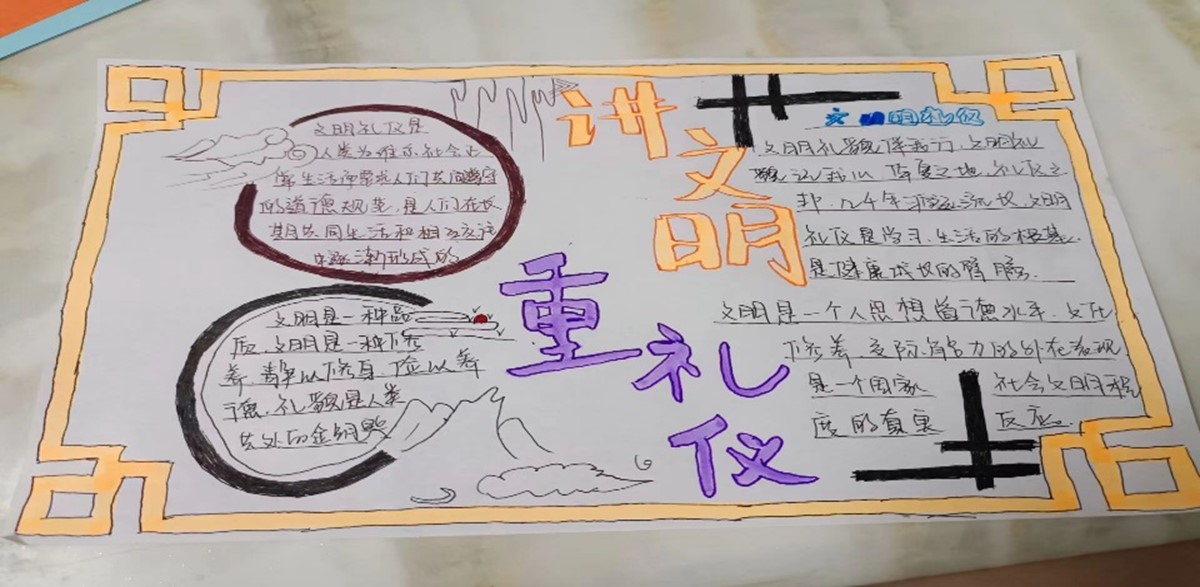 讲文明
重礼仪
文明礼仪是
人类为维系社会正
常生活而要求人们共同遵守
的道德规范,是人们在长
期共同生活和相互交往
中逐渐形成的
文明是一种品
质,文明是一种修
养,静以修身,俭以养
德,礼貌是人类
共处的金钥匙
文明礼仪
文明礼貌伴我行,文明礼
貌记我心,华夏之地,礼仪之
邦,几千年源远流长,文明
礼仪是学习、生活的根基,
是健康成长的臂膀.
文明是一个人思想道德水平、文化
修养、交际能力的外在表现
是一个国家 社会文明程
度的真实 反应。